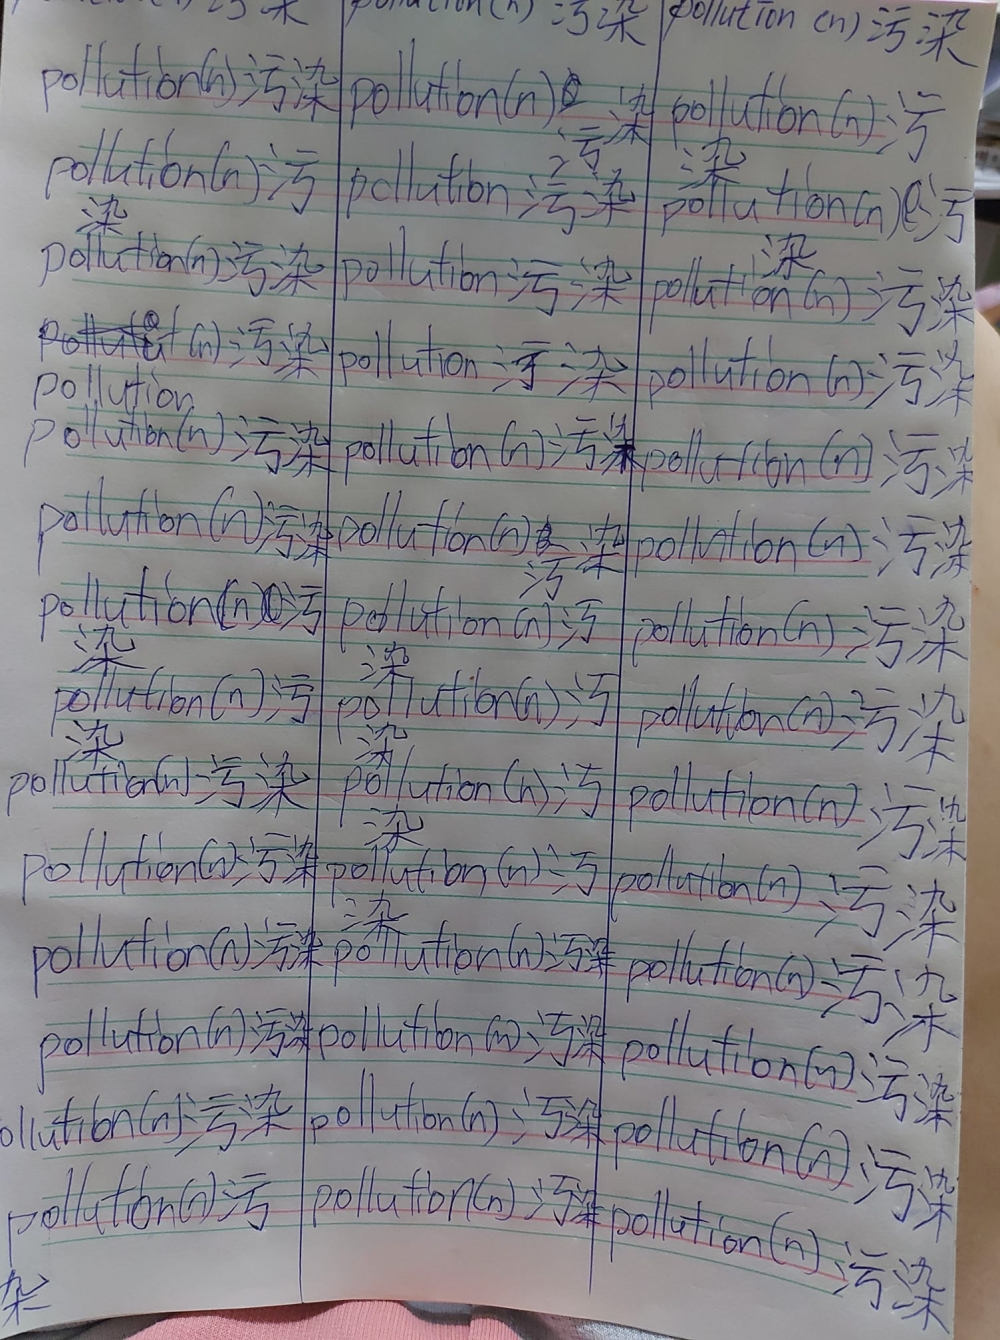 污染 pollution(n) 污染 pollution (n) 污染
pollution(n) 污染 pollution(n) 污染 pollution(n) 污染
pollution(n) 污染 pollution 污染 pollution(n) 污染
pollution(n) 污染 pollution 污染 pollution(n) 污染
(n) 污染 pollution 污染 pollution (n) 污染
pollution
pollution(n) 污染 pollution(n) 污染 pollution(n) 污染
pollution(n) 污染 pollution(n) 污染 pollution(n) 污染
pollution(n) 污染 pollution (n) 污染 pollution(n) 污染
pollution(n) 污染 pollution(n) 污染 pollution(n) 污染
pollution(n) 污染 pollution(n) 污染 pollution(n) 污染
pollution(n) 污染 pollution(n) 污染 pollution(n) 污染
pollution(n) 污染 pollution(n) 污染 pollution(n) 污染
pollution(n) 污染 pollution(n) 污染 pollution(n) 污染
ollution(n) 污染 pollution(n) 污染 pollution(n) 污染
pollution(n) 污染 pollution(n) 污染 pollution(n) 污染